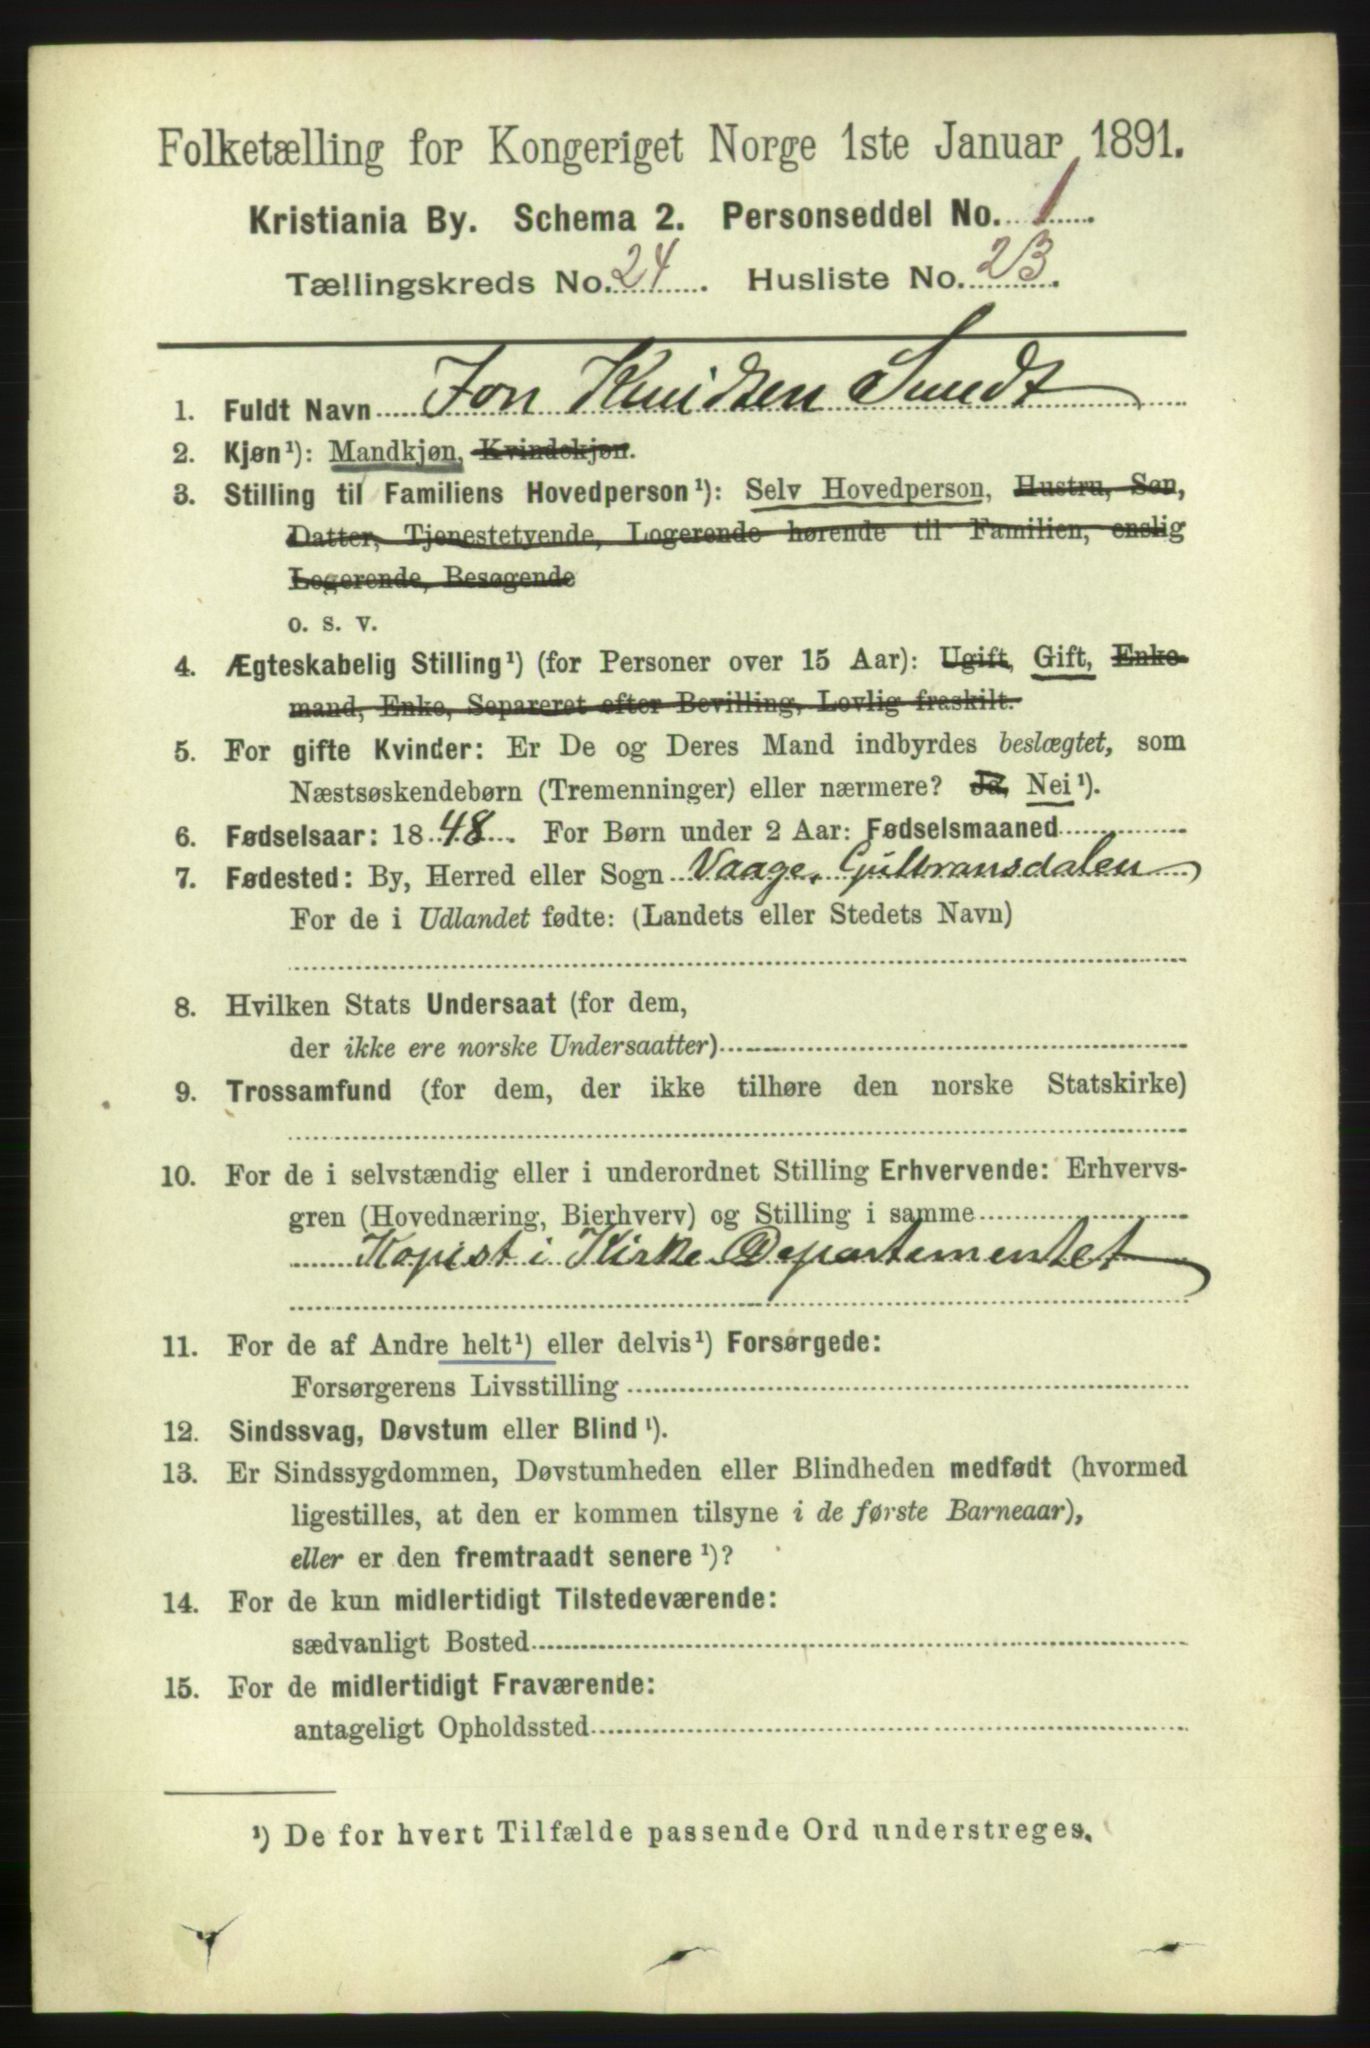 Folketælling for Kongeriget Norge 1ste Januar 1891.
Kristiania By. Schema 2. Personseddel No. 1.
Tællingskreds No. 24. Husliste No. 23.
1. Fuldt Navn Jon Knudsen Sundt
2. Kjøn¹): Mandkjøn, Kvindekjøn.
3. Stilling til Familiens Hovedperson¹): Selv Hovedperson, Hustru, Søn,
Datter, Tjenestetyende, Logerende hørende til Familien, enslig
Logerende, Besøgende
o. s. v.
4. Ægteskabelig Stilling¹) (for Personer over 15 Aar): Ugift, Gift, Enke-
mand, Enke, Separeret efter Bevilling, Lovlig fraskilt.
5. For gifte Kvinder: Er De og Deres Mand indbyrdes beslægtet, som
Næstsøskendebørn (Tremenninger) eller nærmere? Ja, Nei¹).
6. Fødselsaar: 1848. For Børn under 2 Aar: Fødselsmaaned
7. Fødested: By, Herred eller Sogn Vaage, Gulbransdalen
For de i Udlandet fødte: (Landets eller Stedets Navn)
8. Hvilken Stats Undersaat (for dem,
der ikke ere norske Undersaatter)
9. Trossamfund (for dem, der ikke tilhøre den norske Statskirke)
10. For de i selvstændig eller i underordnet Stilling Erhvervende: Erhvervs-
gren (Hovednæring, Bierhverv) og Stilling i samme
Kopist i Kirke Departementet
11. For de af Andre helt¹) eller delvis¹) Forsørgede:
Forsørgerens Livsstilling
12. Sindssvag, Døvstum eller Blind¹).
13. Er Sindssygdommen, Døvstumheden eller Blindheden medfødt (hvormed
ligestilles, at den er kommen tilsyne i de første Barneaar),
eller er den fremtraadt senere¹)?
14. For de kun midlertidigt Tilstedeværende:
sædvanligt Bosted
15. For de midlertidigt Fraværende:
antageligt Opholdssted
¹) De for hvert Tilfælde passende Ord understreges.